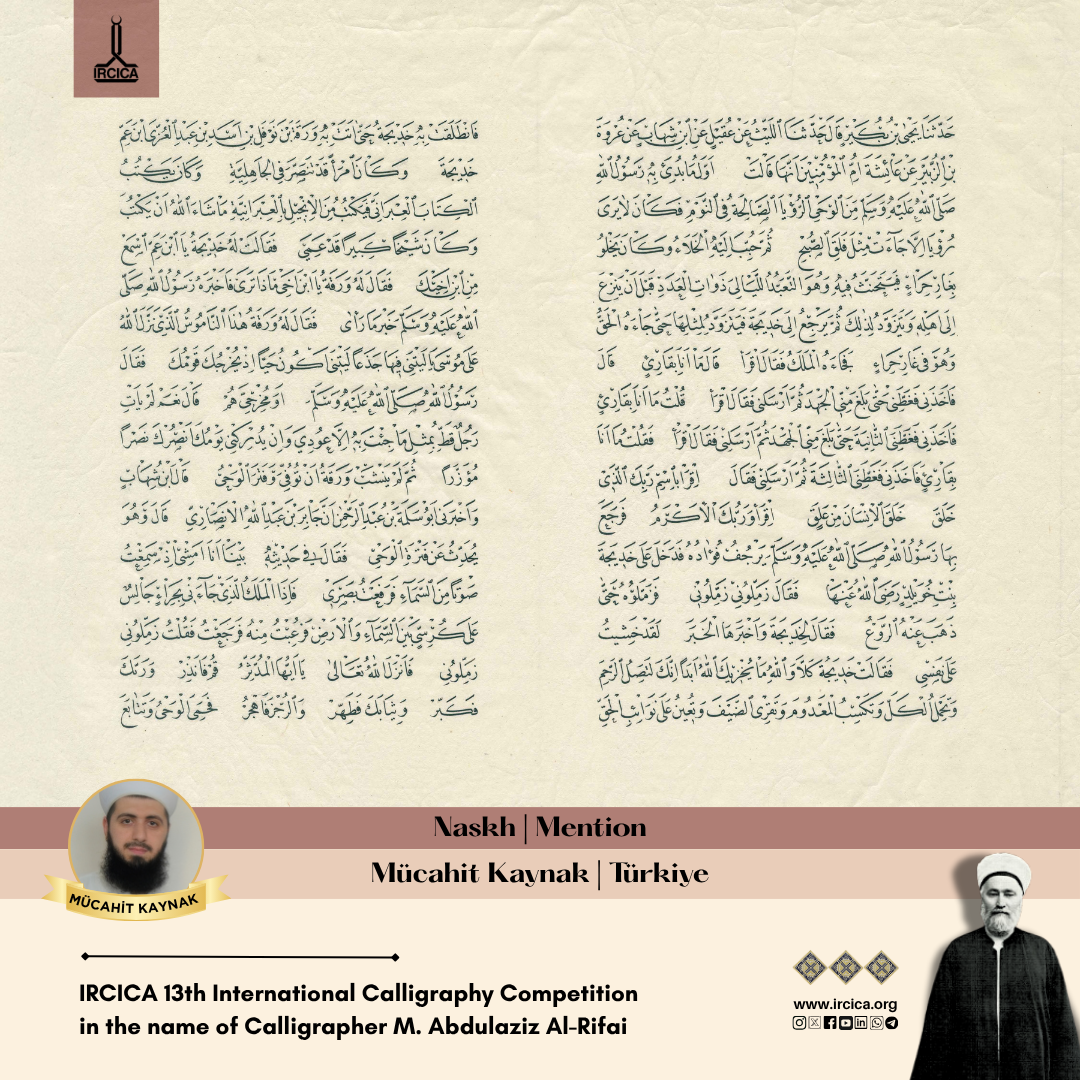 IRCICA
حدثنا يحيى بن بكير قال حدثنا الليث عن عقيل عن ابن شهاب عن عروة
بن الزبير عن عائشة ام المؤمنين انها قالت اول ما بدئ به رسول الله
صلى الله عليه وسلم من الوحي الرؤيا الصالحة في النوم فكان لا يرى
رؤيا الا جاءت مثل فلق الصبح ثم حبب اليه الخلاء وكان يخلو
بغار حراء فيتحنث فيه وهو التعبد الليالي ذوات العدد قبل ان ينزع
الى اهله ويتزود لذلك ثم يرجع الى خديجة فيتزود لمثلها حتى جاءه الحق
وهو في غار حراء فجاءه الملك فقال اقرأ قال ما انا بقارئ قال
فاخذني فغطني حتى بلغ مني الجهد ثم ارسلني فقال اقرأ قلت ما انا بقارئ
فاخذني فغطني الثانية حتى بلغ مني الجهد ثم ارسلني فقال اقرأ فقلت ما انا
بقارئ فاخذني فغطني الثالثة ثم ارسلني فقال اقرأ باسم ربك الذي
خلق خلق الانسان من علق اقرأ وربك الاكرم فرجع
بها رسول الله صلى الله عليه وسلم يرجف فؤاده فدخل على خديجة
بنت خويلد رضي الله عنها فقال زملوني زملوني فزملوه حتى
ذهب عنه الروع فقال لخديجة واخبرها الخبر لقد خشيت
على نفسي فقالت خديجة كلا والله ما يخزيك الله ابدا انك لتصل الرحم
وتحمل الكل وتكسب المعدوم وتقري الضيف وتعين على نوائب الحق
فانطلقت به خديجة حتى اتت به ورقة بن نوفل بن اسد بن عبد العزى ابن عم
خديجة وكان امرأ قد تنصر في الجاهلية وكان يكتب
الكتاب العبراني فيكتب من الانجيل بالعبرانية ما شاء الله ان يكتب
وكان شيخا كبيرا قد عمي فقالت له خديجة يا ابن عم اسمع
من ابن اخيك فقال له ورقة يا ابن اخي ماذا ترى فاخبره رسول الله صلى
الله عليه وسلم خبر ما رأى فقال له ورقة هذا الناموس الذي نزل الله
على موسى يا ليتني فيها جذعا ليتني اكون حيا اذ يخرجك قومك فقال
رسول الله صلى الله عليه وسلم او مخرجي هم قال نعم لم يأت
رجل قط بمثل ما جئت به الا عودي وان يدركني يومك انصرك نصرا
مؤزرا ثم لم ينشب ورقة ان توفي وفتر الوحي قال ابن شهاب
واخبرني ابو سلمة بن عبد الرحمن ان جابر بن عبد الله الانصاري قال وهو
يحدث عن فترة الوحي فقال في حديثه بينا انا امشي اذ سمعت
صوتا من السماء فرفعت بصري فاذا الملك الذي جاءني بحراء جالس
على كرسي بين السماء والارض فرعبت منه فرجعت فقلت زملوني
زملوني فانزل الله تعالى يا ايها المدثر قم فانذر وربك
فكبر وثيابك فطهر والرجز فاهجر فحمي الوحي وتتابع
Naskh | Mention
Mücahit Kaynak | Türkiye
MÜCAHİT KAYNAK
IRCICA 13th International Calligraphy Competition
in the name of Calligrapher M. Abdulaziz Al-Rifai
www.ircica.org